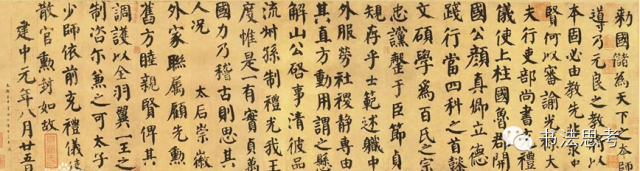 敕國儲為天下之本師
導乃元良之教將以
本固必由教先非求中
賢何以審諭光祿大
夫行吏部尚書充禮
儀使上柱國魯郡開
國公顏真卿立德
踐行當四科之首懿
文碩學為百氏之宗
忠讜罄于臣節貞
規存乎士範述職中
外服勞社稷靜專由
其直方動用謂之懸
解山公啓事清彼品
流叔孫制禮光我王
度惟是一有實貞萬
國力乃稽古則思其
人況 太后崇徽
外家聯属顧先勳
舊方睦親賢俾其
調護以全羽翼一王之
制咨尔兼之可太子
少師依前充禮儀使
散官勳封如故
建中元年八月廿五日
书法思考